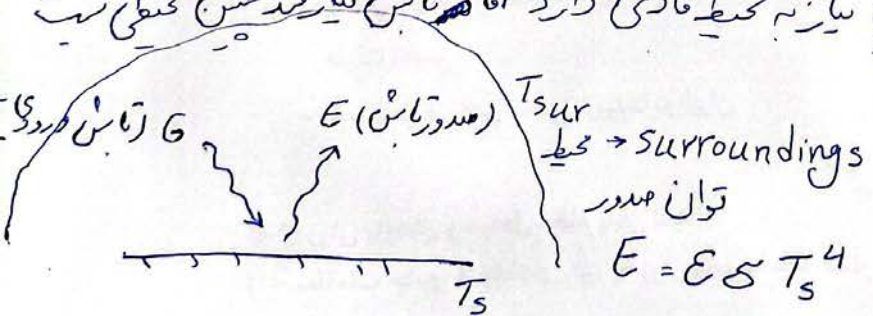 نیاز به محیط مادی دارد اما تابش نیازمند چنین محیطی نیست
G (تابش ورودی)
E (صدور تابش)
Tsur
محیط → surroundings
توان صدور
E = εσ Ts⁴
Ts